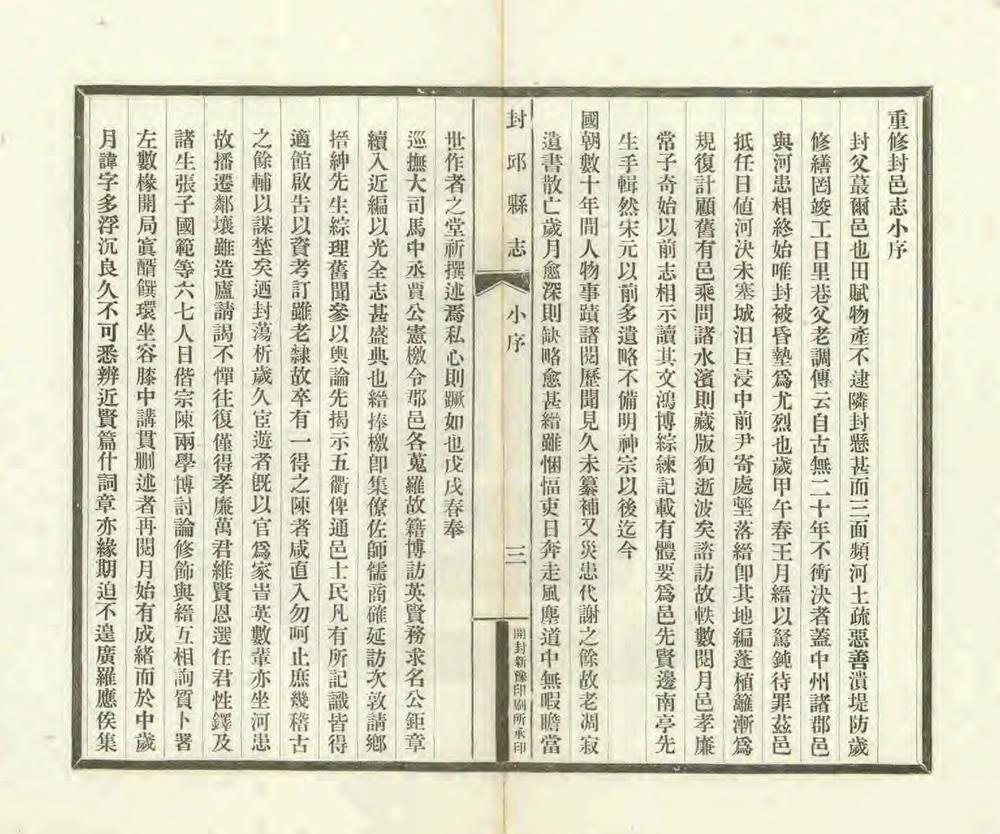 重修封邑志小序
封父蕞爾邑也田賦物產不逮隣封懸甚而三面頻河土疏惡善潰堤防歲
修繕罔竣工日里巷父老調傳云自古無二十年不衝決者蓋中州諸郡邑
與河患相終始唯封被昏墊爲尤烈也歲甲午春王月縉以駑鈍待罪茲邑
抵任日値河決未塞城汨巨浸中前尹寄處堊落縉卽其地編蓬植籬漸爲
規復計顧舊有邑乘問諸水濱則藏版狥逝波矣諮訪故帙數閱月邑孝廉
常子奇始以前志相示讀其文鴻博綜練記載有體要爲邑先賢邊南亭先
生手輯然宋元以前多遺略不備明神宗以後迄今
國朝數十年間人物事蹟諸閱歷聞見久未纂補又災患代謝之餘故老凋寂
遺書散亡歲月愈深則缺略愈甚縉雖悃愊吏日奔走風塵道中無暇瞻當
封邱縣志
小序
三
開封新豫印刷所承印
世作者之堂祈撰述焉私心則蹶如也戊戌春奉
巡撫大司馬中丞賈公憲檄令郡邑各蒐羅故籍博訪英賢務求名公鉅章
續入近編以光全志甚盛典也縉捧檄卽集僚佐師儒商確延訪次敦請鄉
搢紳先生綜理舊聞參以輿論先揭示五衢俾通邑士民凡有所記識皆得
適館啟告以資考訂雖老隸故卒有一得之陳者咸直入勿呵止庶幾稽古
之餘輔以謀埜矣迺封蕩析歲久宦遊者旣以官爲家耆英數輩亦坐河患
故播遷鄰壤雖造廬請謁不憚往復僅得孝廉萬君維賢恩選任君性鐸及
諸生張子國範等六七人日偕宗陳兩學博討論修飾與縉互相詢質卜署
左數椽開局寘酳饌環坐容膝中講貫删述者再閱月始有成緒而於中歲
月諱字多浮沉良久不可悉辨近賢篇什詞章亦緣期迫不遑廣羅應俟集